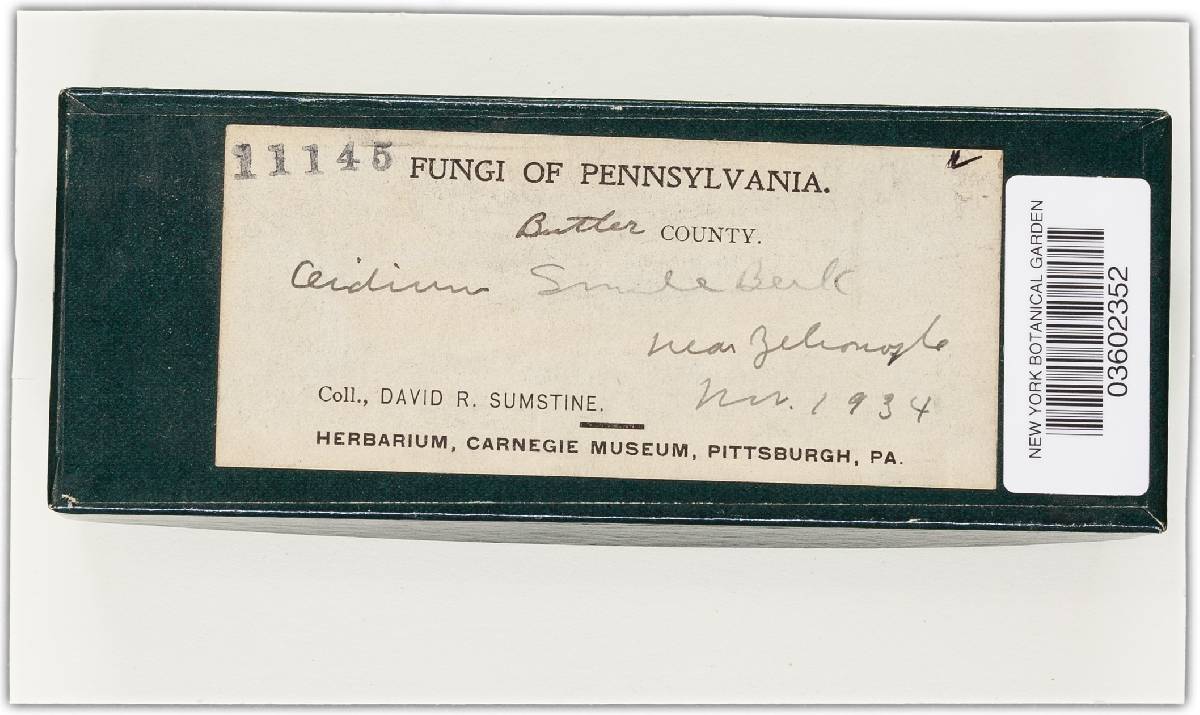 11145 FUNGI OF PENNSYLVANIA.
Butler COUNTY.
Simile Berk
near Zelienople
Nov. 1934
Coll., DAVID R. SUMSTINE.
HERBARIUM, CARNEGIE MUSEUM, PITTSBURGH, PA.
NEW YORK BOTANICAL GARDEN
03602352